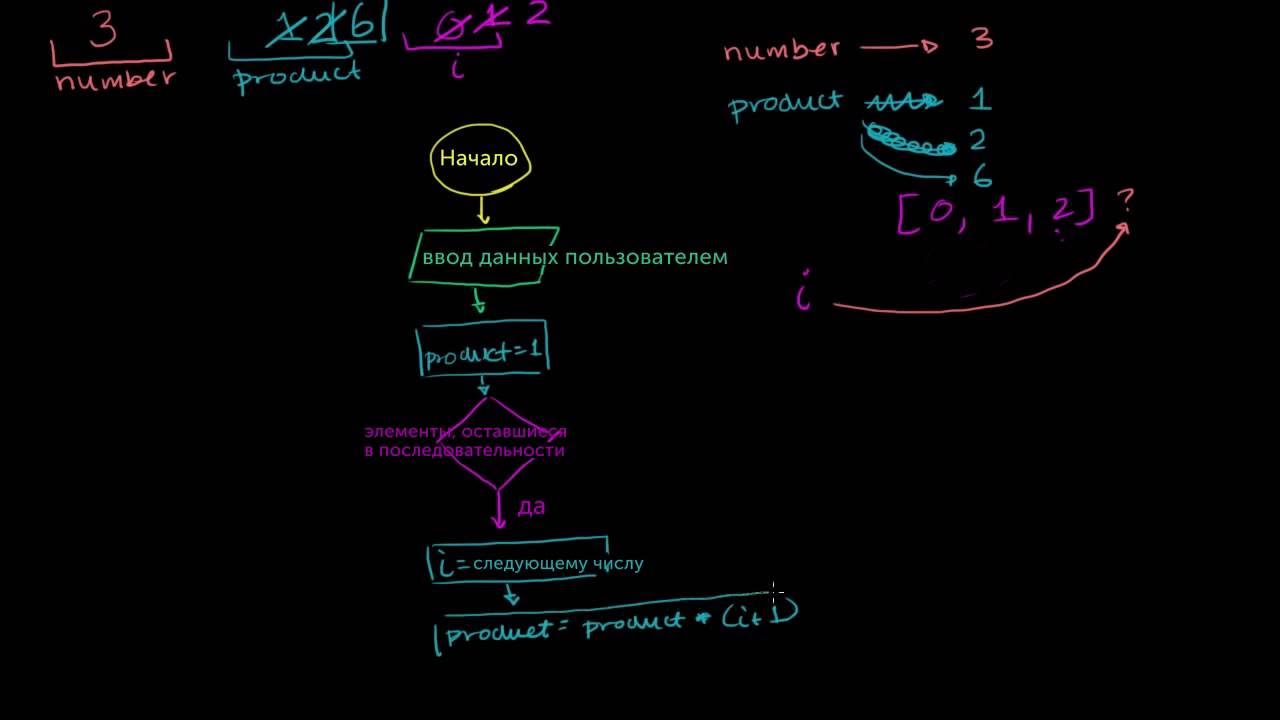 3 1 2 6 0 1 2
number product i
number → 3
product 1
2
6
[0, 1, 2] ?
i
Начало
ввод данных пользователем
product = 1
элементы, оставшиеся
в последовательности
да
i = следующему числу
product = product * (i+1)